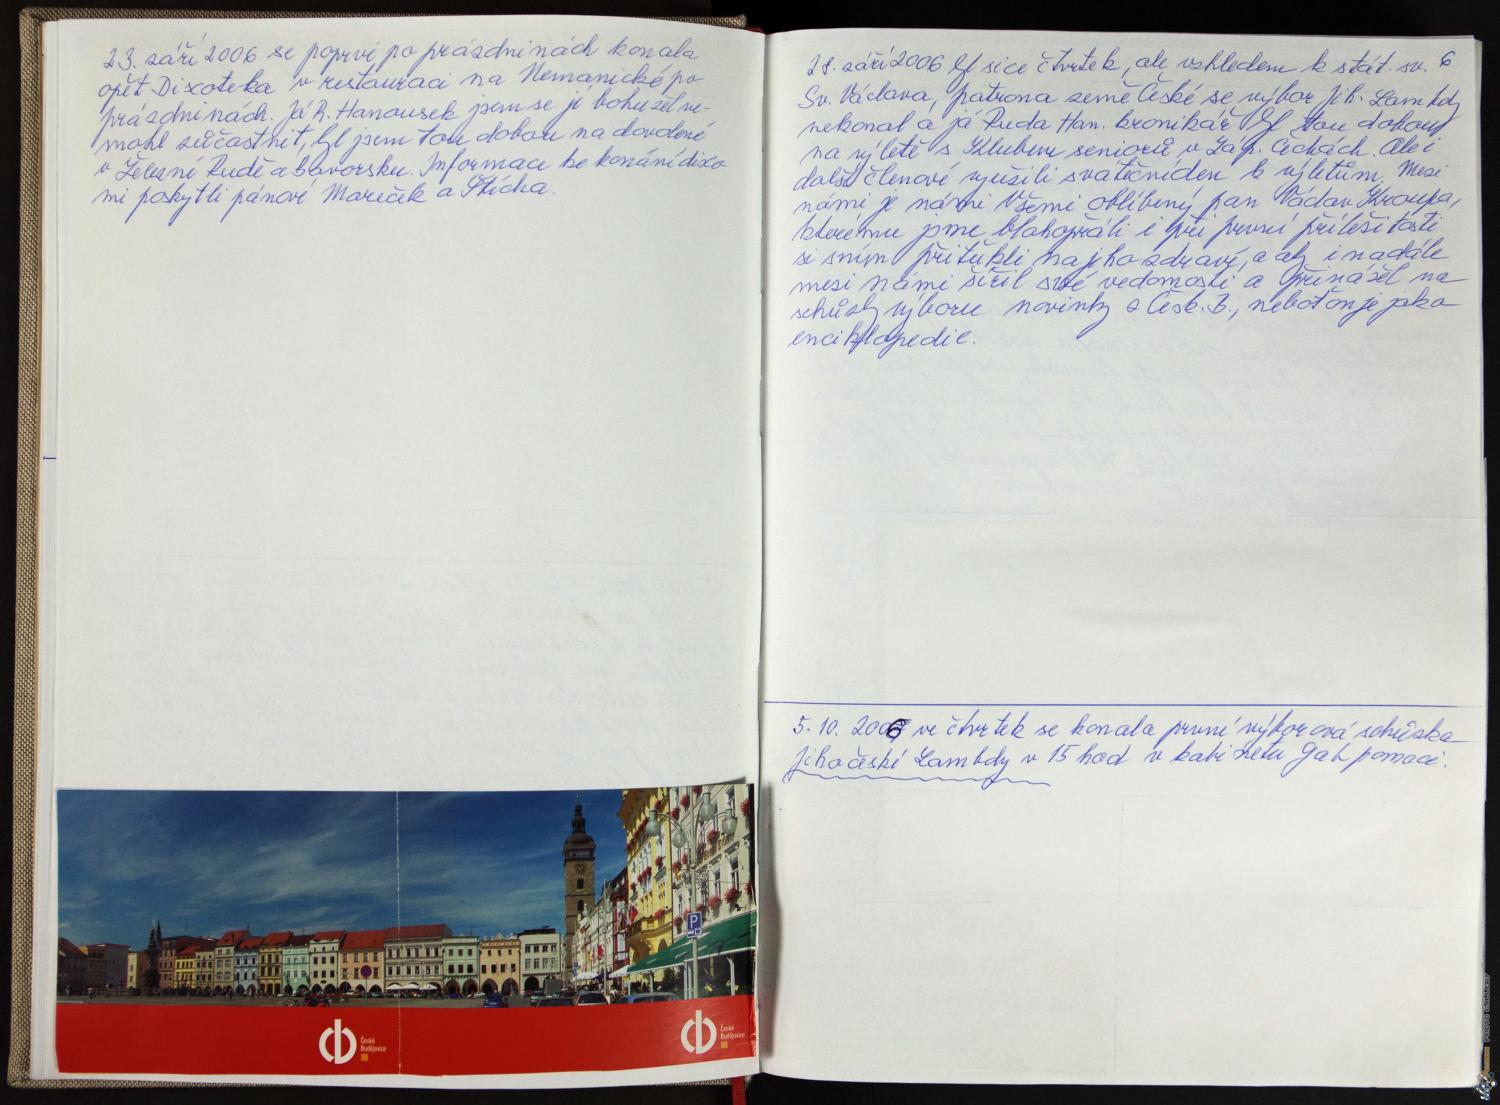 23. září 2006 se poprvé po prázdninách konala
opět Discoteka v restauraci na Nemanické po
prázdninách. Já R. Hanousek jsem se jí bohužel ne-
mohl zúčastnit, byl jsem tou dobou na dovolené
v Železné Rudě a Bavorsku. Informace ke konání disco
mi poskytli pánové Mareček a Plícha.
České
Budějovice
České
Budějovice
6
28. září 2006 byl sice čtvrtek, ale vzhledem k stát. sv.
Sv. Václava, patrona země České se výbor Jih. Lambdy
nekonal a já Ruda Han. kronikář byl tou dobou
na výletě s Klubem seniorů v Záp. Čechách. Ale i
další členové využili sváteční den k výletům. Mezi
námi je námi všemi oblíbený pan Václav Kroupa,
kterému jsme blahopřáli i při první příležitosti
si s ním přiťukli na jeho zdraví, a aby i nadále
mezi námi šířil své vedomosti a přinášel na
schůzky výboru novinky z Česk. B., neboť on je jako
enciklopedie.
5. 10. 2006 ve čtvrtek se konala první výborová schůzka
Jihočeské Lambdy v 15 hod v kabinetu Gah pomoci.
P